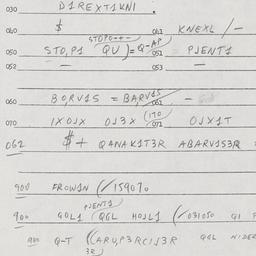 030 D1REXT1KNI.
040 $ 041 KNEXL /—
STOP6++-
050 STO,P1 QU)=Q-AP 051 PJENT1
052 — 053 —
060 BORV1S = BARV1S —
070 1XOJX OJ3X (1TO 071 OJX1T
062 $+ QANAK1T3R ABARV1S3R =
900 FROWJN (/159070
PJENT1)
900 GOL1 (QGL HOJL1 (/031050 Q1
900 Q-T ((ARU,P3RC1J3R QGL N1DER
3R)